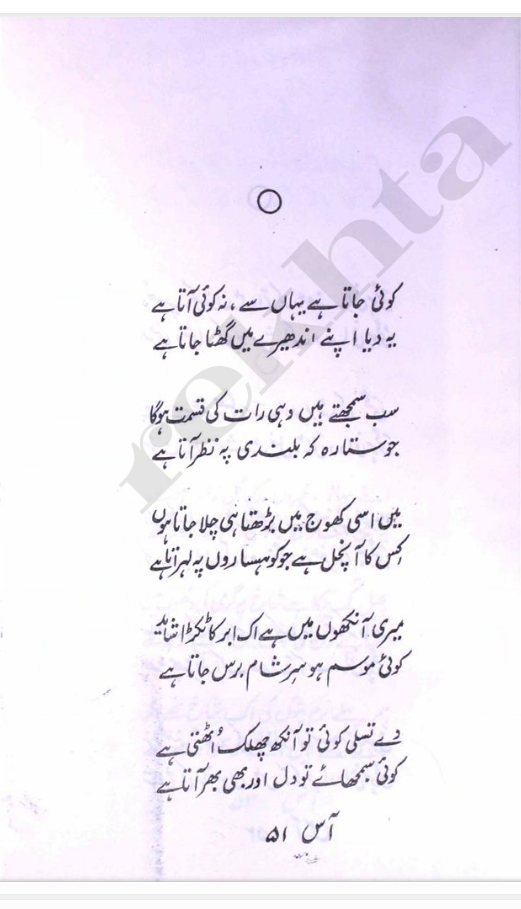 rekhta
کوئی جاتا ہے یہاں سے ، نہ کوئی آتا ہے
یہ دیا اپنے اندھیرے میں گھٹا جاتا ہے
سب سمجھتے ہیں وہی رات کی قسمت ہوگا
جو ستارہ کہ بلندی پہ نظر آتا ہے
میں اسی کھوج میں بڑھتا ہی چلا جاتا ہوں
کس کا آنچل ہے جو کوہساروں پہ لہراتا ہے
میری آنکھوں میں ہے اک ابر کا ٹکڑا شاید
کوئی موسم ہو سرِ شام برس جاتا ہے
دے تسلی کوئی تو آنکھ چھلک اُٹھتی ہے
کوئی سمجھائے تو دل اور بھی بھر آتا ہے
آس ۵۱